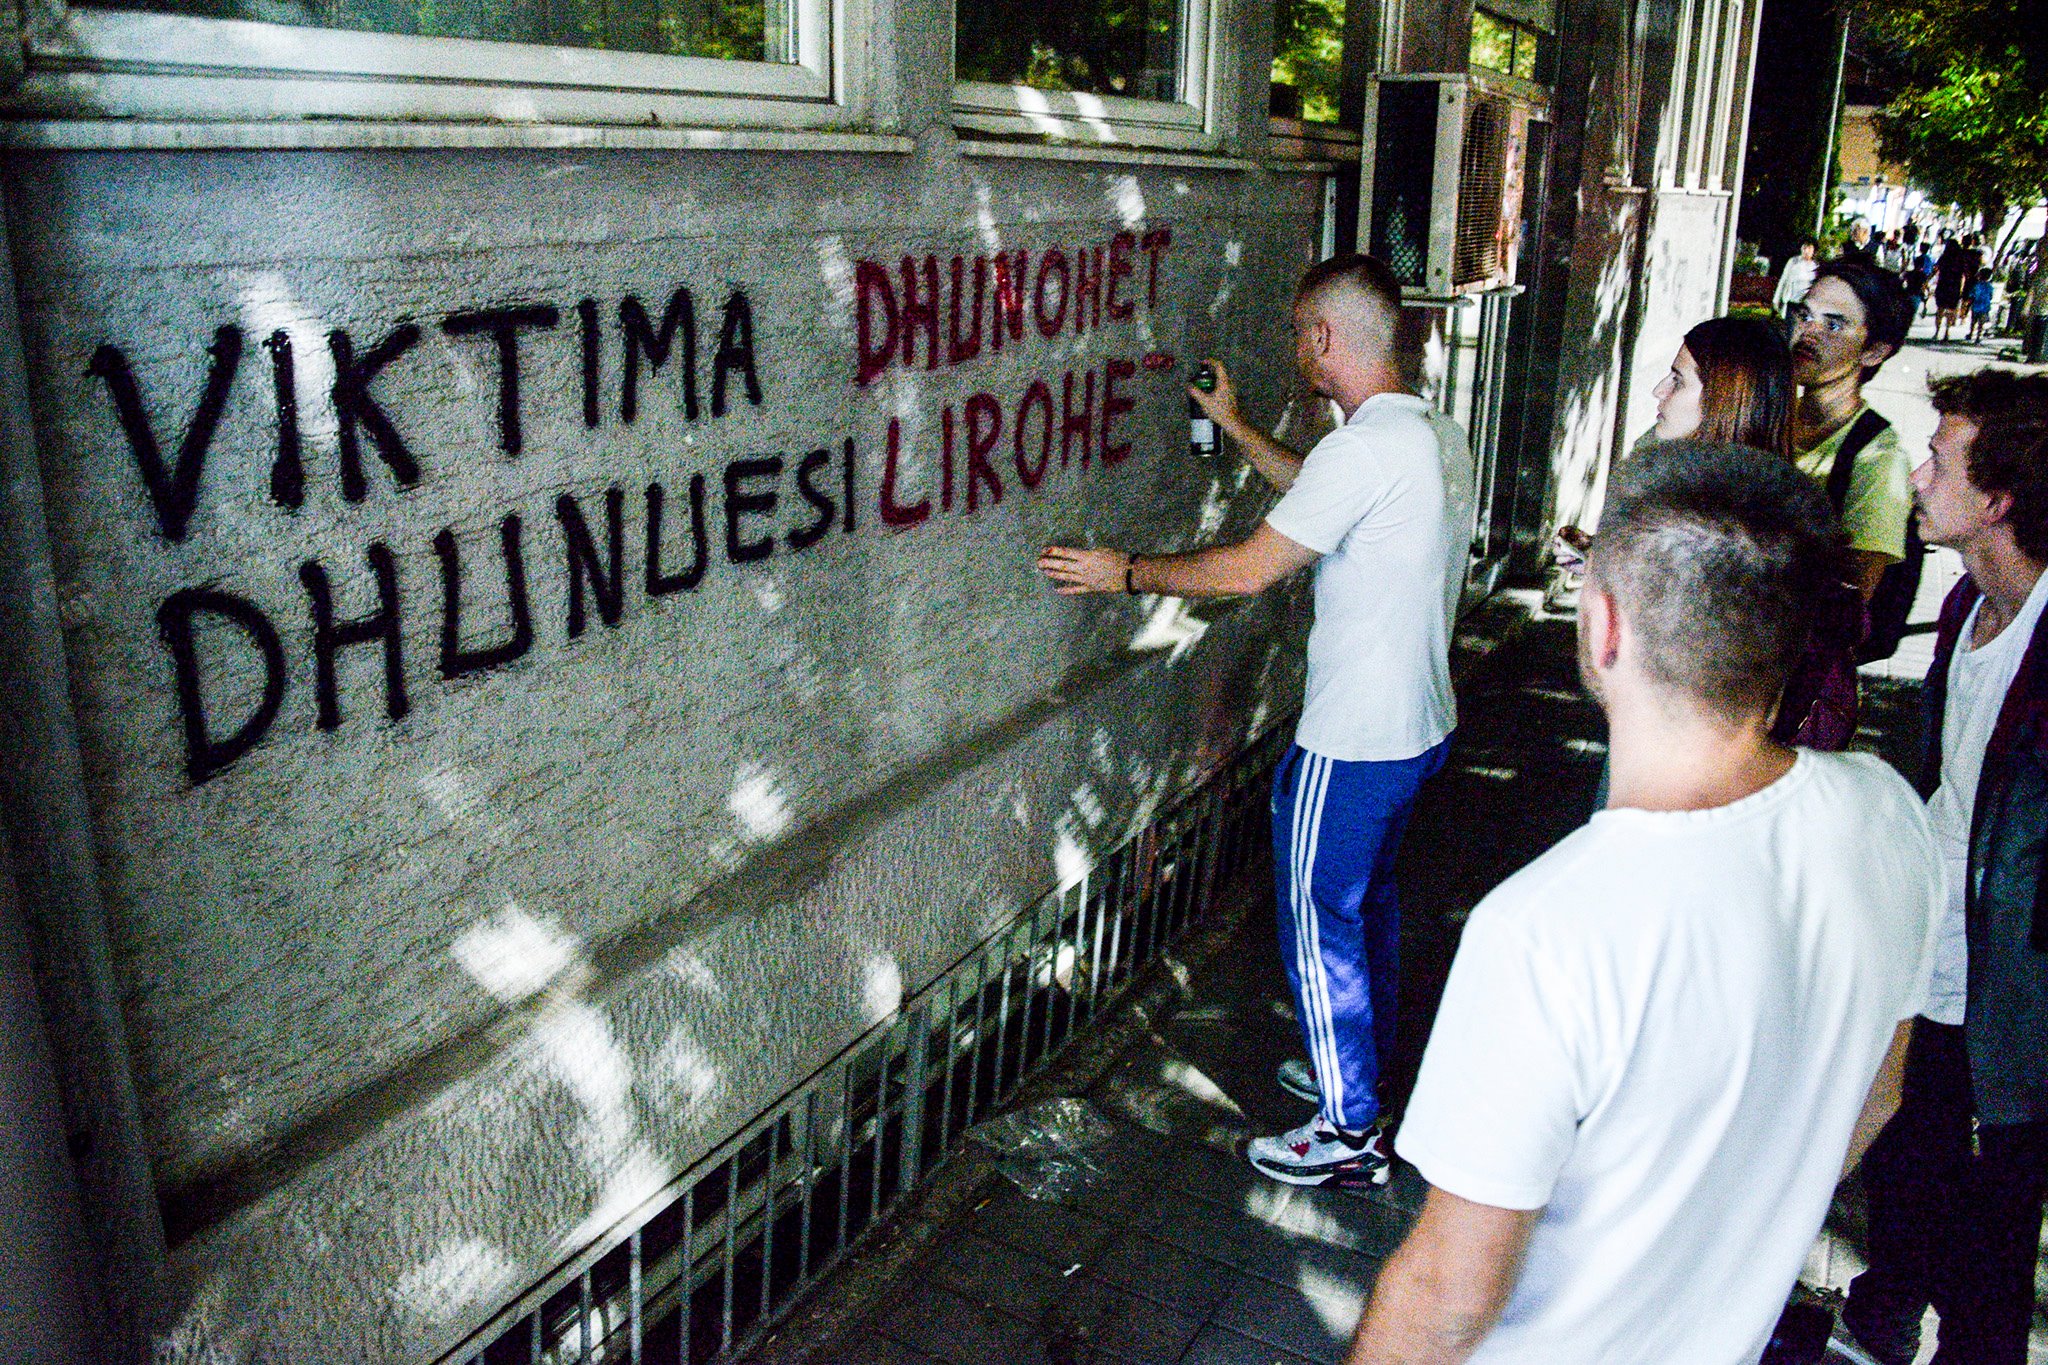 VIKTIMA DHUNOHET
DHUNUESI LIROHET